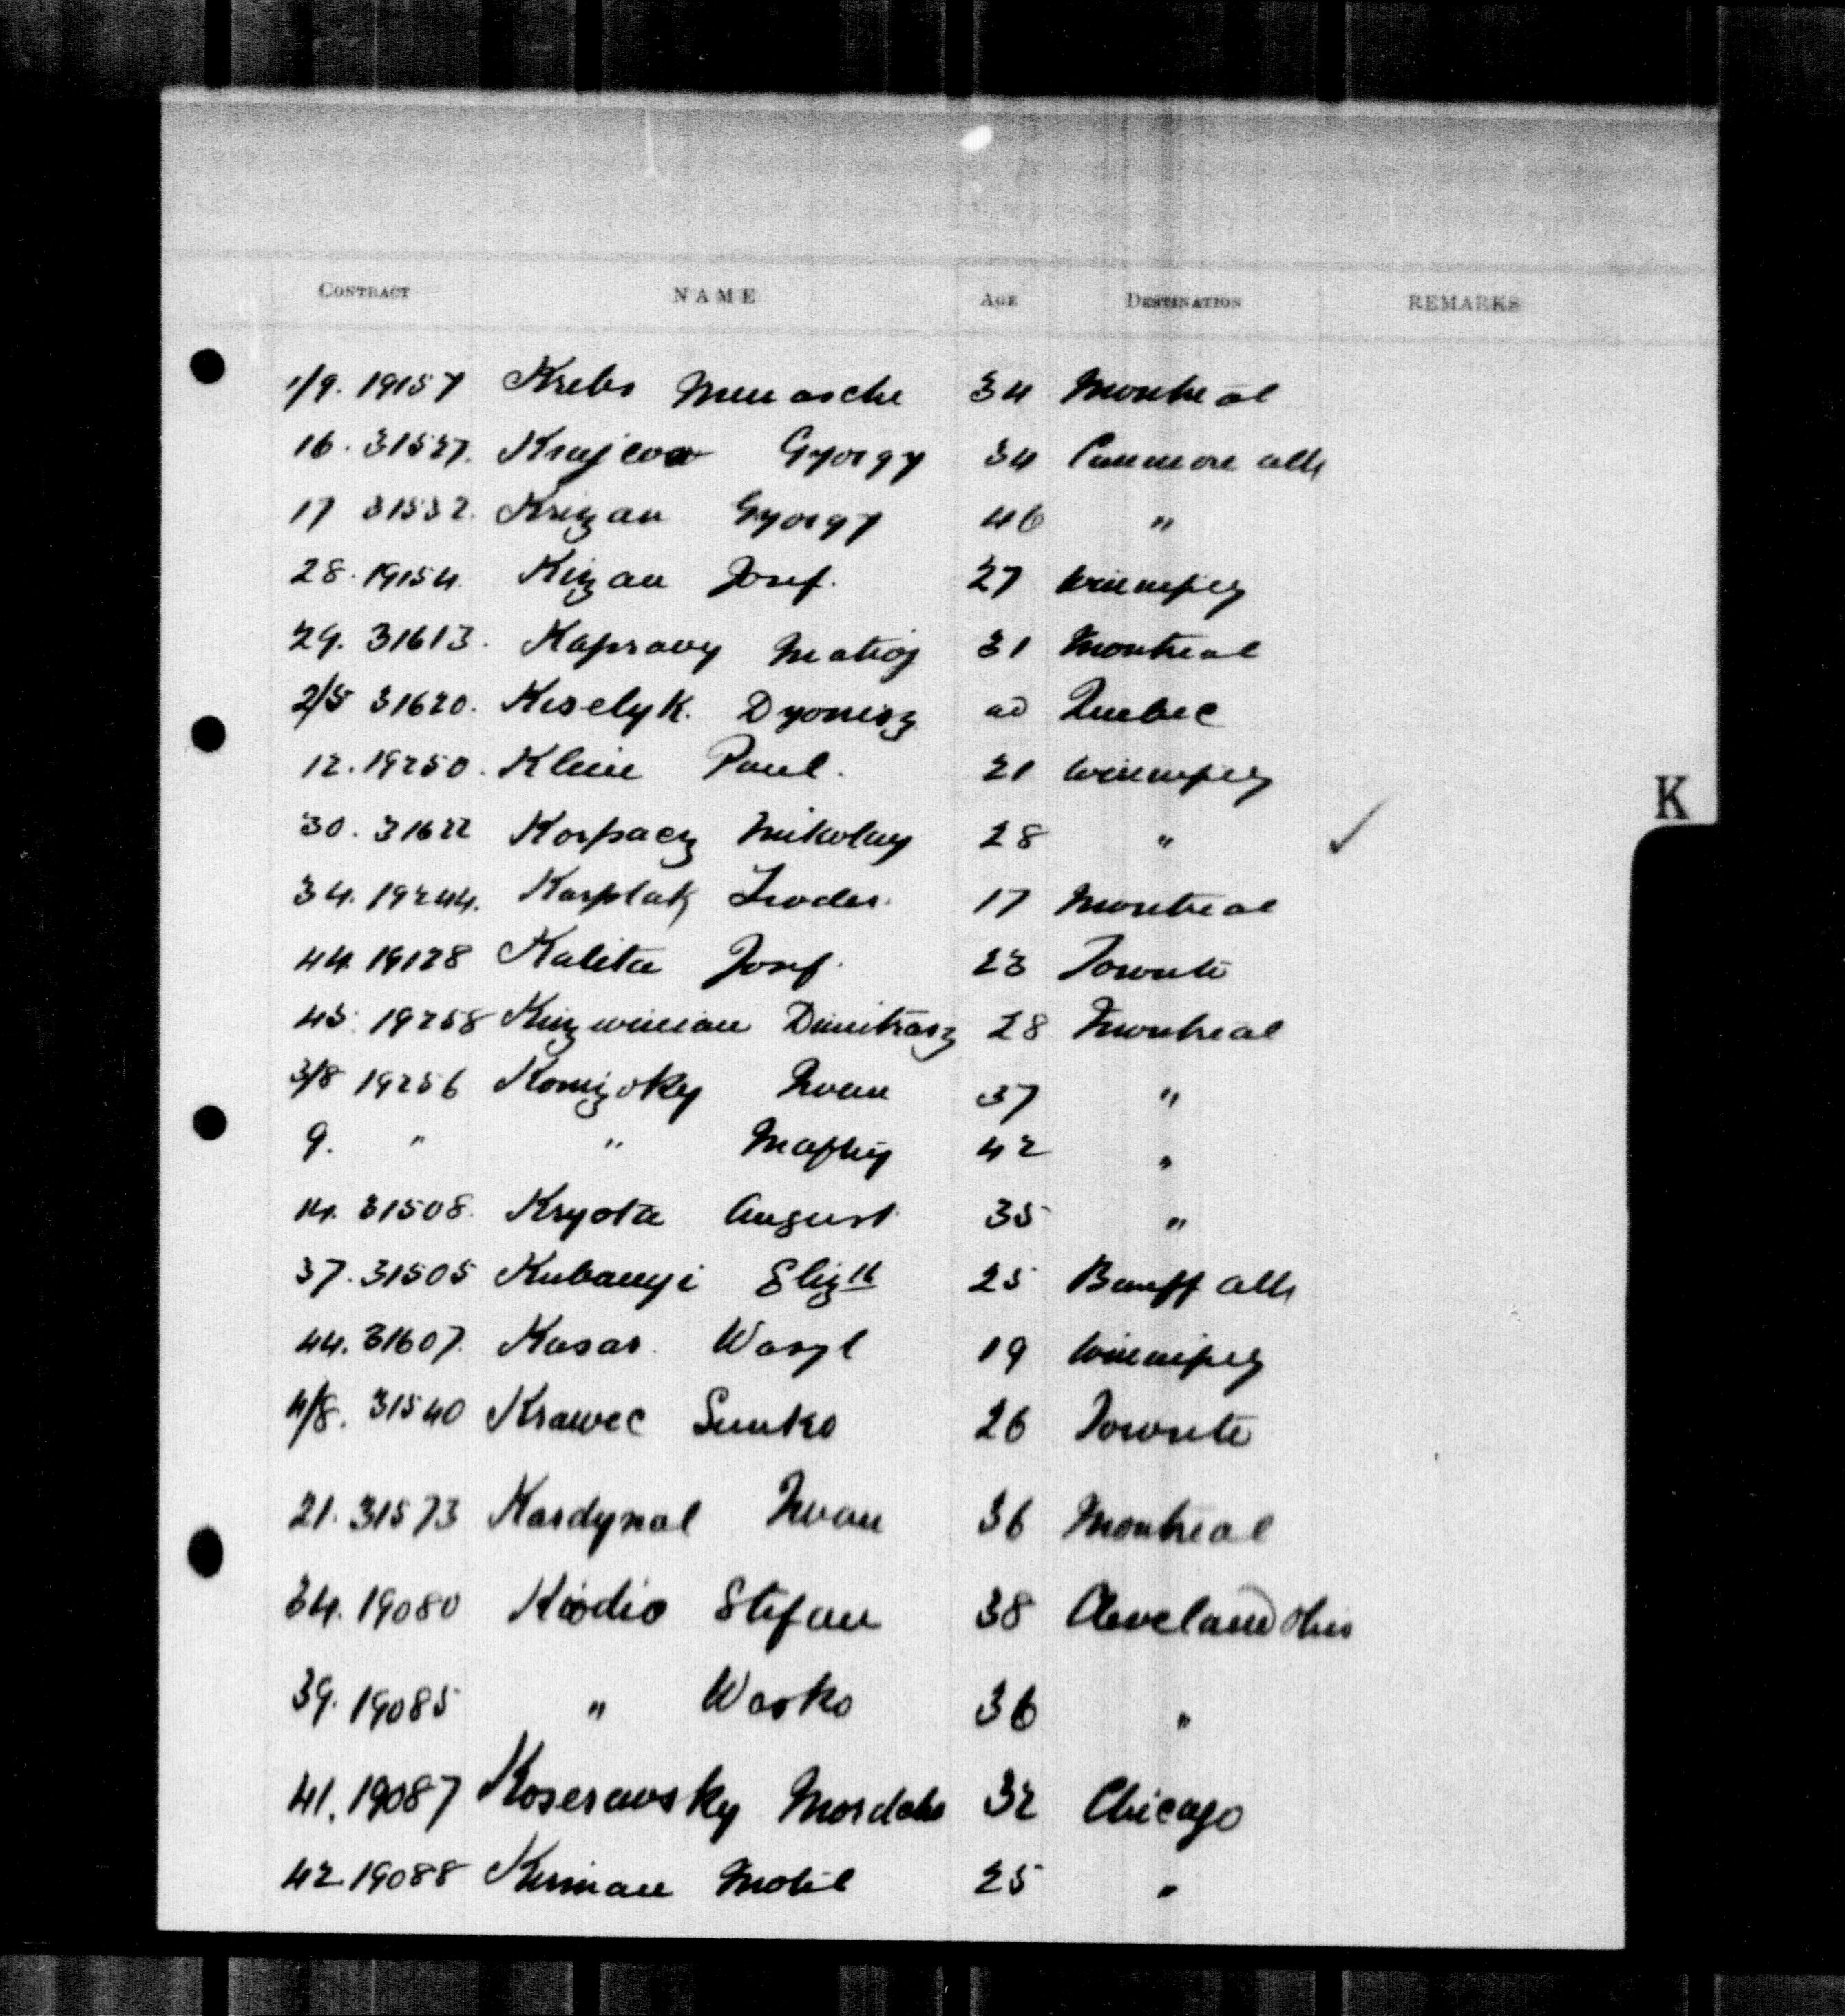 CONTRACT NAME AGE DESTINATION REMARKS
1/9. 19157 Krebs Menasche 34 Montreal
16. 31527. Krajcov Gyorgy 34 Canmore alta
17 31532. Krizan Gyorgy 46 "
28. 19154. Kizan Josef. 27 Winnipeg
29. 31613. Kaprawy Matioj 31 Montreal
2/5 31620. Kiselyk. Dyonisz ad Quebec
12. 19250. Klein Paul. 21 Winnipeg
30. 31622 Korpacz Mikolay 28 " ✓
34. 19244. Karplak 17 Montreal
K
44. 19128 Kalita Josef. 23 Toronto
45. 19258 Dimitrasz 28 Montreal
3/8 19256 Komizoky Iwan 37 "
9. " " 42 "
14. 31508. Krysta August 35 "
37. 31505 Kubanyi Elizth 25 Banff alta
44. 31607. Kasar. Wasyl 19 Winnipeg
4/8. 31540 Krawec Senko 26 Toronto
21. 31573 Kardynal Iwan 36 Montreal
34. 19080 Stefan 38 Cleveland Ohio
39. 19085 " Wasko 36 "
41. 19087 Koserawsky 32 Chicago
42. 19088 Motil 25 "